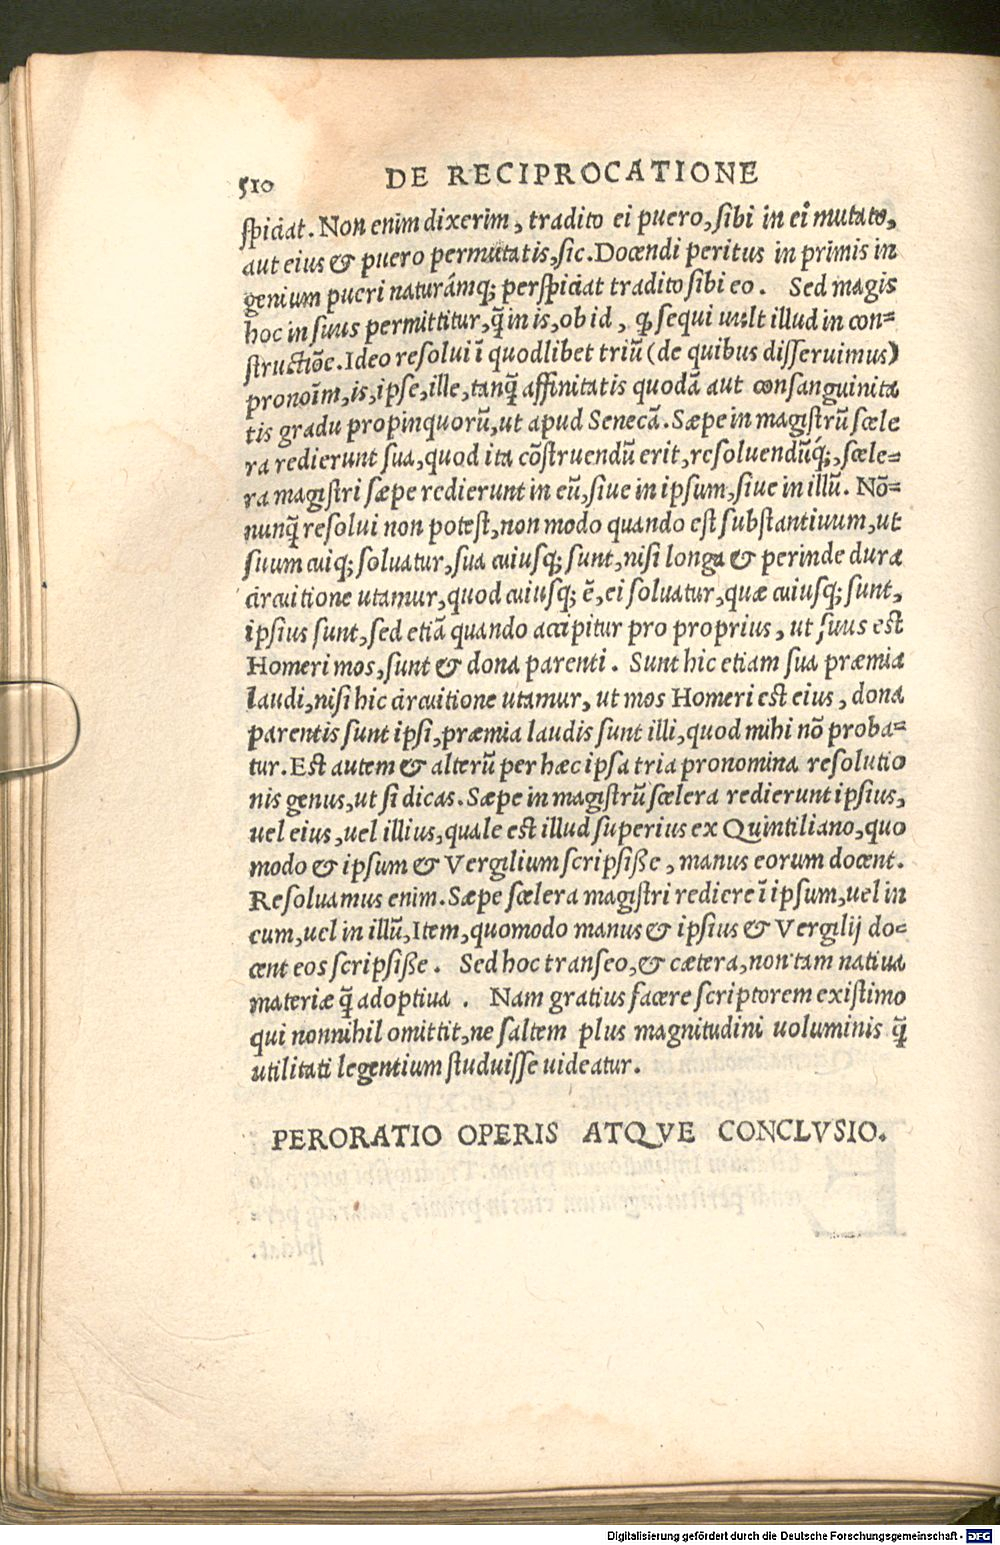 510 DE RECIPROCATIONE
spiciat. Non enim dixerim, tradito ei puero, sibi in ei mutato,
aut eius & puero permutatis, sic. Docendi peritus in primis in
genium pueri naturámq; perspiciat tradito sibi eo. Sed magis
hoc in suus permittitur, q̃ in is, ob id, ꝙ sequi uult illud in con=
structiõe. Ideo resolui ĩ quodlibet triũ (de quibus disseruimus)
pronoĩm, is, ipse, ille, tanq̃ affinitatis quodã aut consanguinita
tis gradu propinquorũ, ut apud Senecã. Sæpe in magistrũ scele
ra redierunt sua, quod ita cõstruendũ erit, resoluendũq́;, scele=
ra magistri sæpe redierunt in eũ, siue in ipsum, siue in illũ. Nõ=
nunq̃ resolui non potest, non modo quando est substantiuum, ut
suum cuiq; soluatur, sua cuiusq; sunt, nisi longa & perinde dura
circuitione utamur, quod cuiusq; ẽ, ei soluatur, quæ cuiusq; sunt,
ipsius sunt, sed etiã quando accipitur pro proprius, ut suus est
Homeri mos, sunt & dona parenti. Sunt hic etiam sua præmia
laudi, nisi hic circuitione utamur, ut mos Homeri est eius, dona
parentis sunt ipsi, præmia laudis sunt illi, quod mihi nõ proba=
tur. Est autem & alterũ per hæc ipsa tria pronomina resolutio
nis genus, ut si dicas. Sæpe in magistrũ scelera redierunt ipsius,
uel eius, uel illius, quale est illud superius ex Quintiliano, quo
modo & ipsum & Vergilium scripsiße, manus eorum docent.
Resoluamus enim. Sæpe scelera magistri rediere ĩ ipsum, uel in
eum, uel in illũ, Item, quomodo manus & ipsius & Vergilij do=
cent eos scripsiße. Sed hoc transeo, & cætera, non tam natiua
materiæ q̃ adoptiua. Nam gratius facere scriptorem existimo
qui nonnihil omittit, ne saltem plus magnitudini uoluminis q̃
utilitati legentium studuisse uideatur.
PERORATIO OPERIS ATQVE CONCLVSIO.
Digitalisierung gefördert durch die Deutsche Forschungsgemeinschaft - DFG